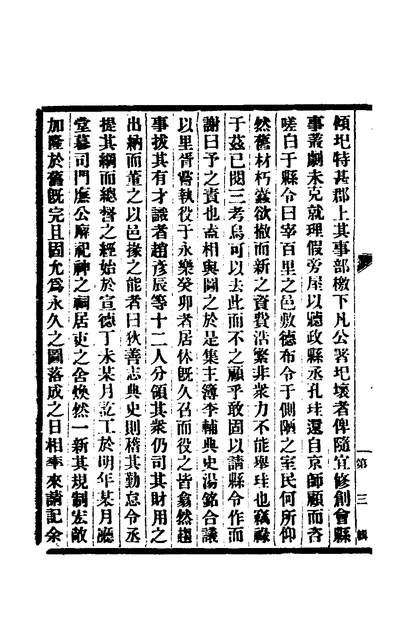 傾圮特甚郡上其事部檄下凡公署圮壞者俾隨宜修創會縣
事叢劇未克就理假旁屋以聽政縣丞孔珪還自京師顧而吝
嗟白于縣令曰宰百里之邑敷德布令于側隘之室民何所仰
然舊材朽蠹欲撤而新之資費浩繁非衆力不能舉珪也竊祿
于茲已閱三考烏可以去此而不之顧乎敢固以請縣令作而
謝曰予之責也盍相與圖之於是集主簿李輔典史湯銘合議
以里胥嘗執役于永樂癸卯者居休既久召而役之皆翕然趨
事拔其有才識者趙彥辰等十二人分領其衆仍司其財用之
出納而董之以邑掾之能者曰狄善志典史則稽其勤怠令丞
提其綱而總督之經始於宣德丁未某月訖工於明年某月廳
堂幕司門廡公廨祀神之祠居吏之舍煥然一新其規制宏敞
加隆於舊既完且固允爲永久之圖落成之日相率來請記余
第三輯